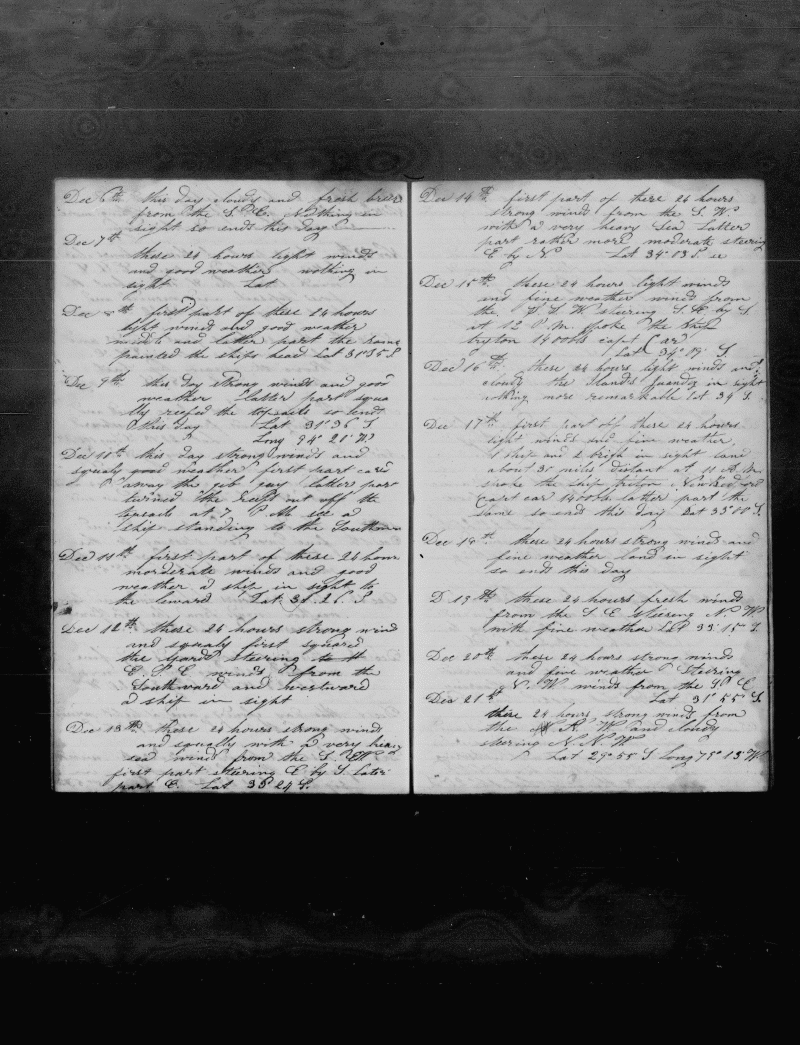 Dec 6th this day cloudy and fresh breez
from the S. E. Nothing in
sight so ends this day
Dec 7th
these 24 hours light winds
and good weather nothing in
sight Lat
Dec 8th first part of these 24 hours
light winds and good weather
middle and latter part the same
painted the ships head Lat 31°35 S
Dec 9th this day strong winds and good
weather latter part squa
lly reefed the topsails so ends
this day Lat 31°36 S
Long 94° 21' W
Dec 10th this day strong winds and
squaly good weather first part card
away the gib latter part
turned the reefs out off the
topsails at 7 P M see a
ship standing to the Southward
Dec 11th first part of these 24 hours
morderate winds and good
weather a ship in sight to
the leward Lat 34. 26. S.
Dec 12th these 24 hours strong wind
and squaly first squared
the yards steering to
E. S. E winds from the
Southward and westward
a ship in sight
Dec 13th these 24 hours strong wind
and squally with a very heavy
sea wind from the S. W
first part steering E by S later
part E. Lat 35° 24 S.
Dec 14th first part of these 24 hours
strong winds from the S. W.
with a very heavy Sea Latter
part rather more moderate steering
E by N Lat 34° 13 S
Dec 15th these 24 hours light winds
and fine weather winds from
the S. S. W steering S. E by S
at 12 P. M. spoke the ship
1400bls capt Car
Lat 34° 09' S.
Dec 16th these 24 hours light winds and
cloudy the Islands in sight
nothing more remarkable Lat 34 S.
Dec 17th first part off these 24 hours
light winds and fine weather.
1 ship and 2 brigs in sight land
about 30 miles distant at 11 A. M.
spoke the ship
capt car 1400bls latter part the
same so ends this day Lat 33°00 S.
Dec 18th these 24 hours strong winds and
fine weather land in sight
so ends this day
D 19th these 24 hours fresh winds
from the S. E. steering N. W
with fine weather Lat 33° 15 S.
Dec 20th these 24 hours strong winds
and fine weather Steering
N. W winds from the S. E
Dec 21st Lat 31° 55 S.
these 24 hours strong winds from
the and cloudy
steering N. N. W
Lat 29° 55 S Long 75° 13' W